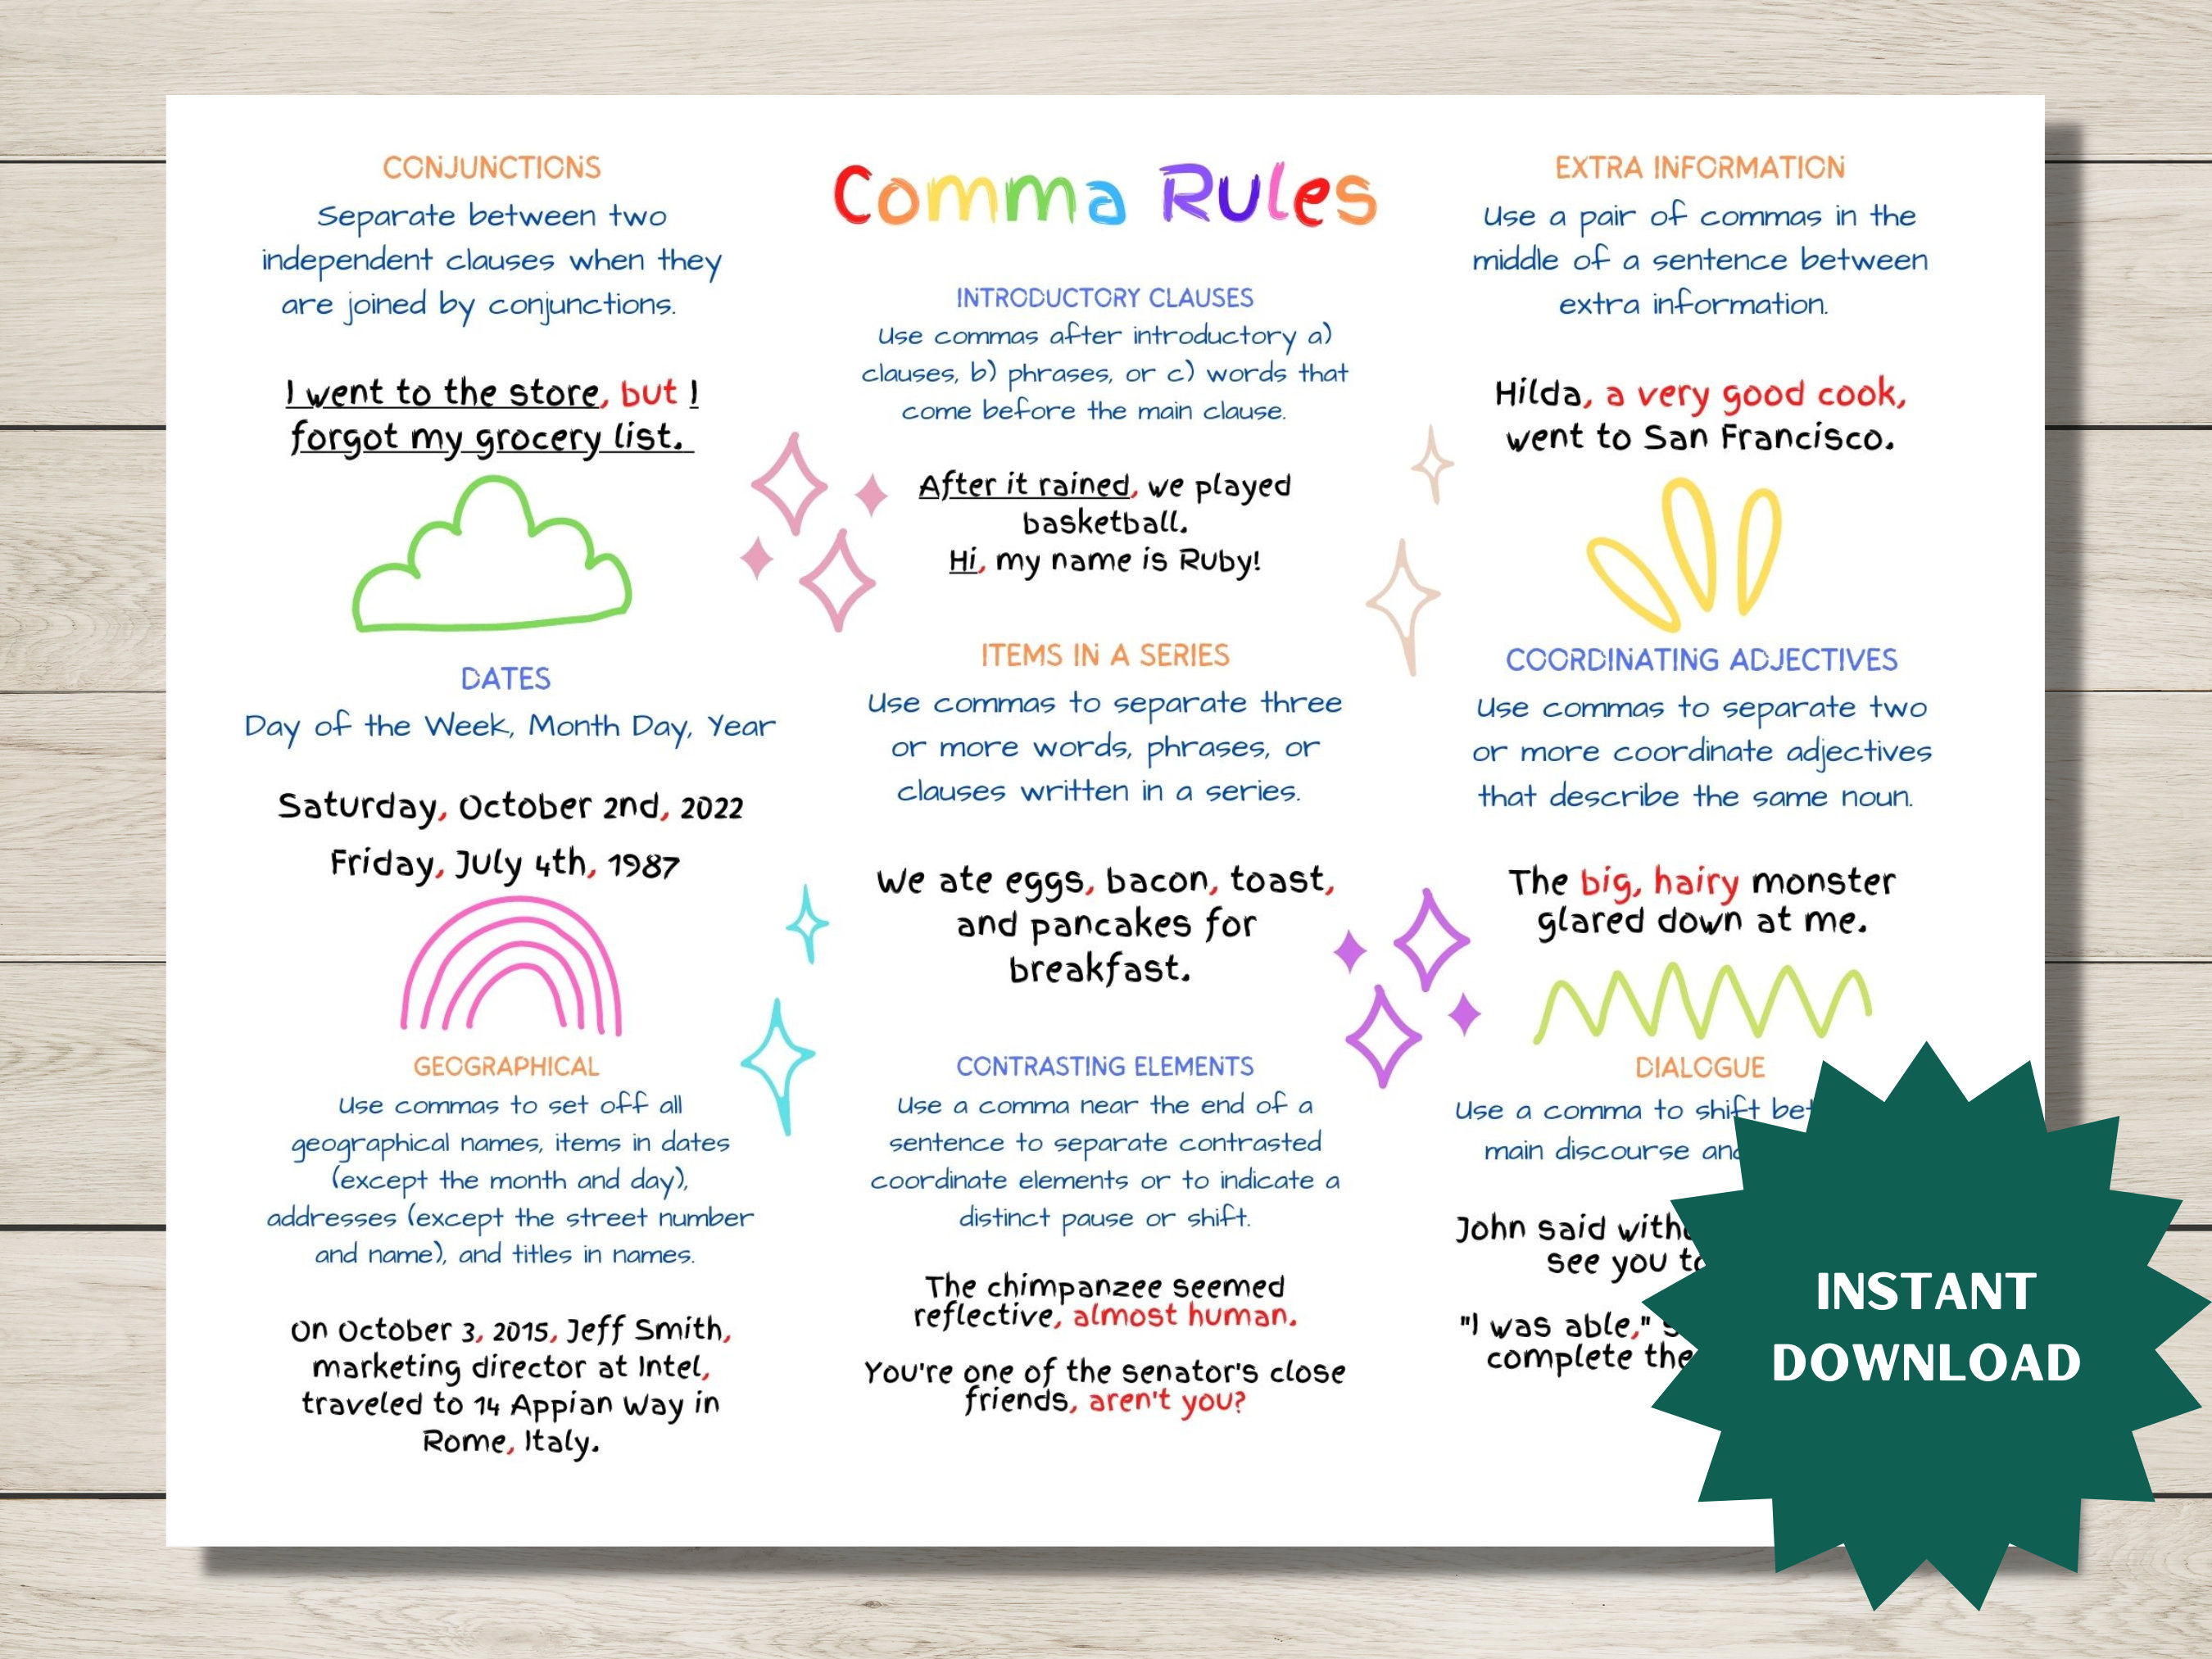 Comma Rules
CONJUNCTIONS
Separate between two
independent clauses when they
are joined by conjunctions.
I went to the store, but I
forgot my grocery list.
DATES
Day of the Week, Month Day, Year
Saturday, October 2nd, 2022
Friday, July 4th, 1987
GEOGRAPHICAL
Use commas to set off all
geographical names, items in dates
(except the month and day),
addresses (except the street number
and name), and titles in names.
On October 3, 2015, Jeff Smith,
marketing director at Intel,
traveled to 14 Appian Way in
Rome, Italy.
INTRODUCTORY CLAUSES
Use commas after introductory a)
clauses, b) phrases, or c) words that
come before the main clause.
After it rained, we played
basketball.
Hi, my name is Ruby!
ITEMS IN A SERIES
Use commas to separate three
or more words, phrases, or
clauses written in a series.
We ate eggs, bacon, toast,
and pancakes for
breakfast.
CONTRASTING ELEMENTS
Use a comma near the end of a
sentence to separate contrasted
coordinate elements or to indicate a
distinct pause or shift.
The chimpanzee seemed
reflective, almost human.
You're one of the senator's close
friends, aren't you?
EXTRA INFORMATION
Use a pair of commas in the
middle of a sentence between
extra information.
Hilda, a very good cook,
went to San Francisco.
COORDINATING ADJECTIVES
Use commas to separate two
or more coordinate adjectives
that describe the same noun.
The big, hairy monster
glared down at me.
DIALOGUE
Use a comma to shift
main discourse
John said
see you
"I was able,"
complete
INSTANT
DOWNLOAD